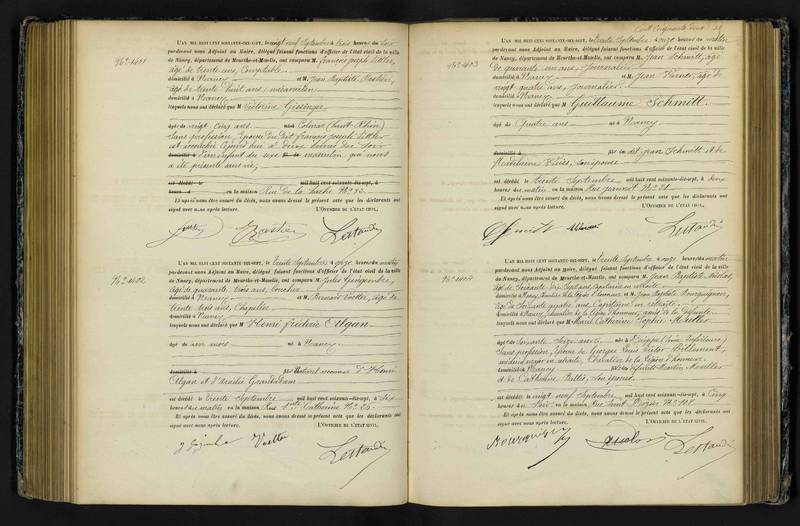 L'AN MIL HUIT CENT SOIXANTE-DIX-SEPT, le vingt neuf Septembre à trois heures du soir
Nº 1401
pardevant nous Adjoint au Maire, délégué faisant fonctions d'officier de l'état civil de la ville
de Nancy, département de Meurthe-et-Moselle, ont comparu M. François joseph
âgé de trente ans, Comptable
domicilié à Nancy et M. Jean Baptiste Bastien,
âgé de trente huit ans,
domicilié à Nancy
lesquels nous ont déclaré que M Victorine
âgée de vingt cinq ans née à Colmar (haut-Rhin)
sans profession, Epouse du dit François joseph
est accouchée aujourd'hui à du soir
domicilié à d'un enfant du sexe masculin qui nous
a été présenté sans vie,
est décédé le mil huit cent soixante-dix-sept, à
heures d en la maison Rue de la hache Nº 52
Et après nous être assuré du décès, nous avons dressé le présent acte que les déclarants ont
signé avec nous après lecture. L'OFFICIER DE L'ÉTAT CIVIL,
Bastien
L'AN MIL HUIT CENT SOIXANTE-DIX-SEPT, le trente Septembre à onze heures du matin
Nº 1402
pardevant nous Adjoint au Maire, délégué faisant fonctions d'officier de l'état civil de la ville
de Nancy, département de Meurthe-et-Moselle, ont comparu M. Jules Gingembre,
âgé de quarante trois ans, boucher
domicilié à Nancy et M. Bernard, âgé de
trente trois ans, Chapelier
domicilié à Nancy
lesquels nous ont déclaré que M Henri frédéric Algan
âgé de un mois né à Nancy
domicilié à fils naturel reconnu d'Henri
Algan et d'Amélie Grandadam
est décédé le trente Septembre mil huit cent soixante-dix-sept, à six
heures du matin en la maison Rue Ste Catherine Nº 26
Et après nous être assuré du décès, nous avons dressé le présent acte que les déclarants ont
signé avec nous après lecture. L'OFFICIER DE L'ÉTAT CIVIL,
Cent Cinquante deux
L'AN MIL HUIT CENT SOIXANTE-DIX-SEPT, le trente Septembre à onze heures du matin
Nº 1403
pardevant nous Adjoint au Maire, délégué faisant fonctions d'officier de l'état civil de la ville
de Nancy, département de Meurthe-et-Moselle, ont comparu M. Jean Schmitt, âgé
de quarante un ans, journalier
domicilié à Nancy et M. Jean, âgé de
vingt quatre ans, journalier
domicilié à Nancy
lesquels nous ont déclaré que M Guillaume Schmitt
âgé de quatre ans né à Nancy
domicilié à fils du dit jean Schmitt et de
Madeleine, son épouse
est décédé le trente Septembre mil huit cent soixante-dix-sept, à deux
heures du matin en la maison Rue jeannot Nº 21
Et après nous être assuré du décès, nous avons dressé le présent acte que les déclarants ont
signé avec nous après lecture. L'OFFICIER DE L'ÉTAT CIVIL,
Schmidt
L'AN MIL HUIT CENT SOIXANTE-DIX-SEPT, le trente Septembre à onze heures du matin
Nº 1404
pardevant nous Adjoint au Maire, délégué faisant fonctions d'officier de l'état civil de la ville
de Nancy, département de Meurthe-et-Moselle, ont comparu M. Jean Baptiste
âgé de Soixante dix sept ans, Capitaine en retraite
domicilié à Nancy, Chevalier de la Légion d'honneur et M. Jean Baptiste Bourguignon,
âgé de Soixante quatre ans, Capitaine en retraite
domicilié à Nancy, Chevalier de la Légion d'honneur, amis de la défunte
lesquels nous ont déclaré que M Marie Catherine Sophie Mueller
âgée de Soixante Seize ans née à Dieppe (Seine Inférieure)
Sans profession, Epouse de Georges Louis Victor
major en retraite, Chevalier de la légion d'honneur
domicilié à Nancy fille de défunts Martin Mueller
et de Catherine, son épouse
est décédée le vingt neuf Septembre mil huit cent soixante-dix-sept, à Cinq
heures du Soir en la maison Rue Saint Dizier Nº 108
Et après nous être assuré du décès, nous avons dressé le présent acte que les déclarants ont
signé avec nous après lecture. L'OFFICIER DE L'ÉTAT CIVIL,
Bourguignon